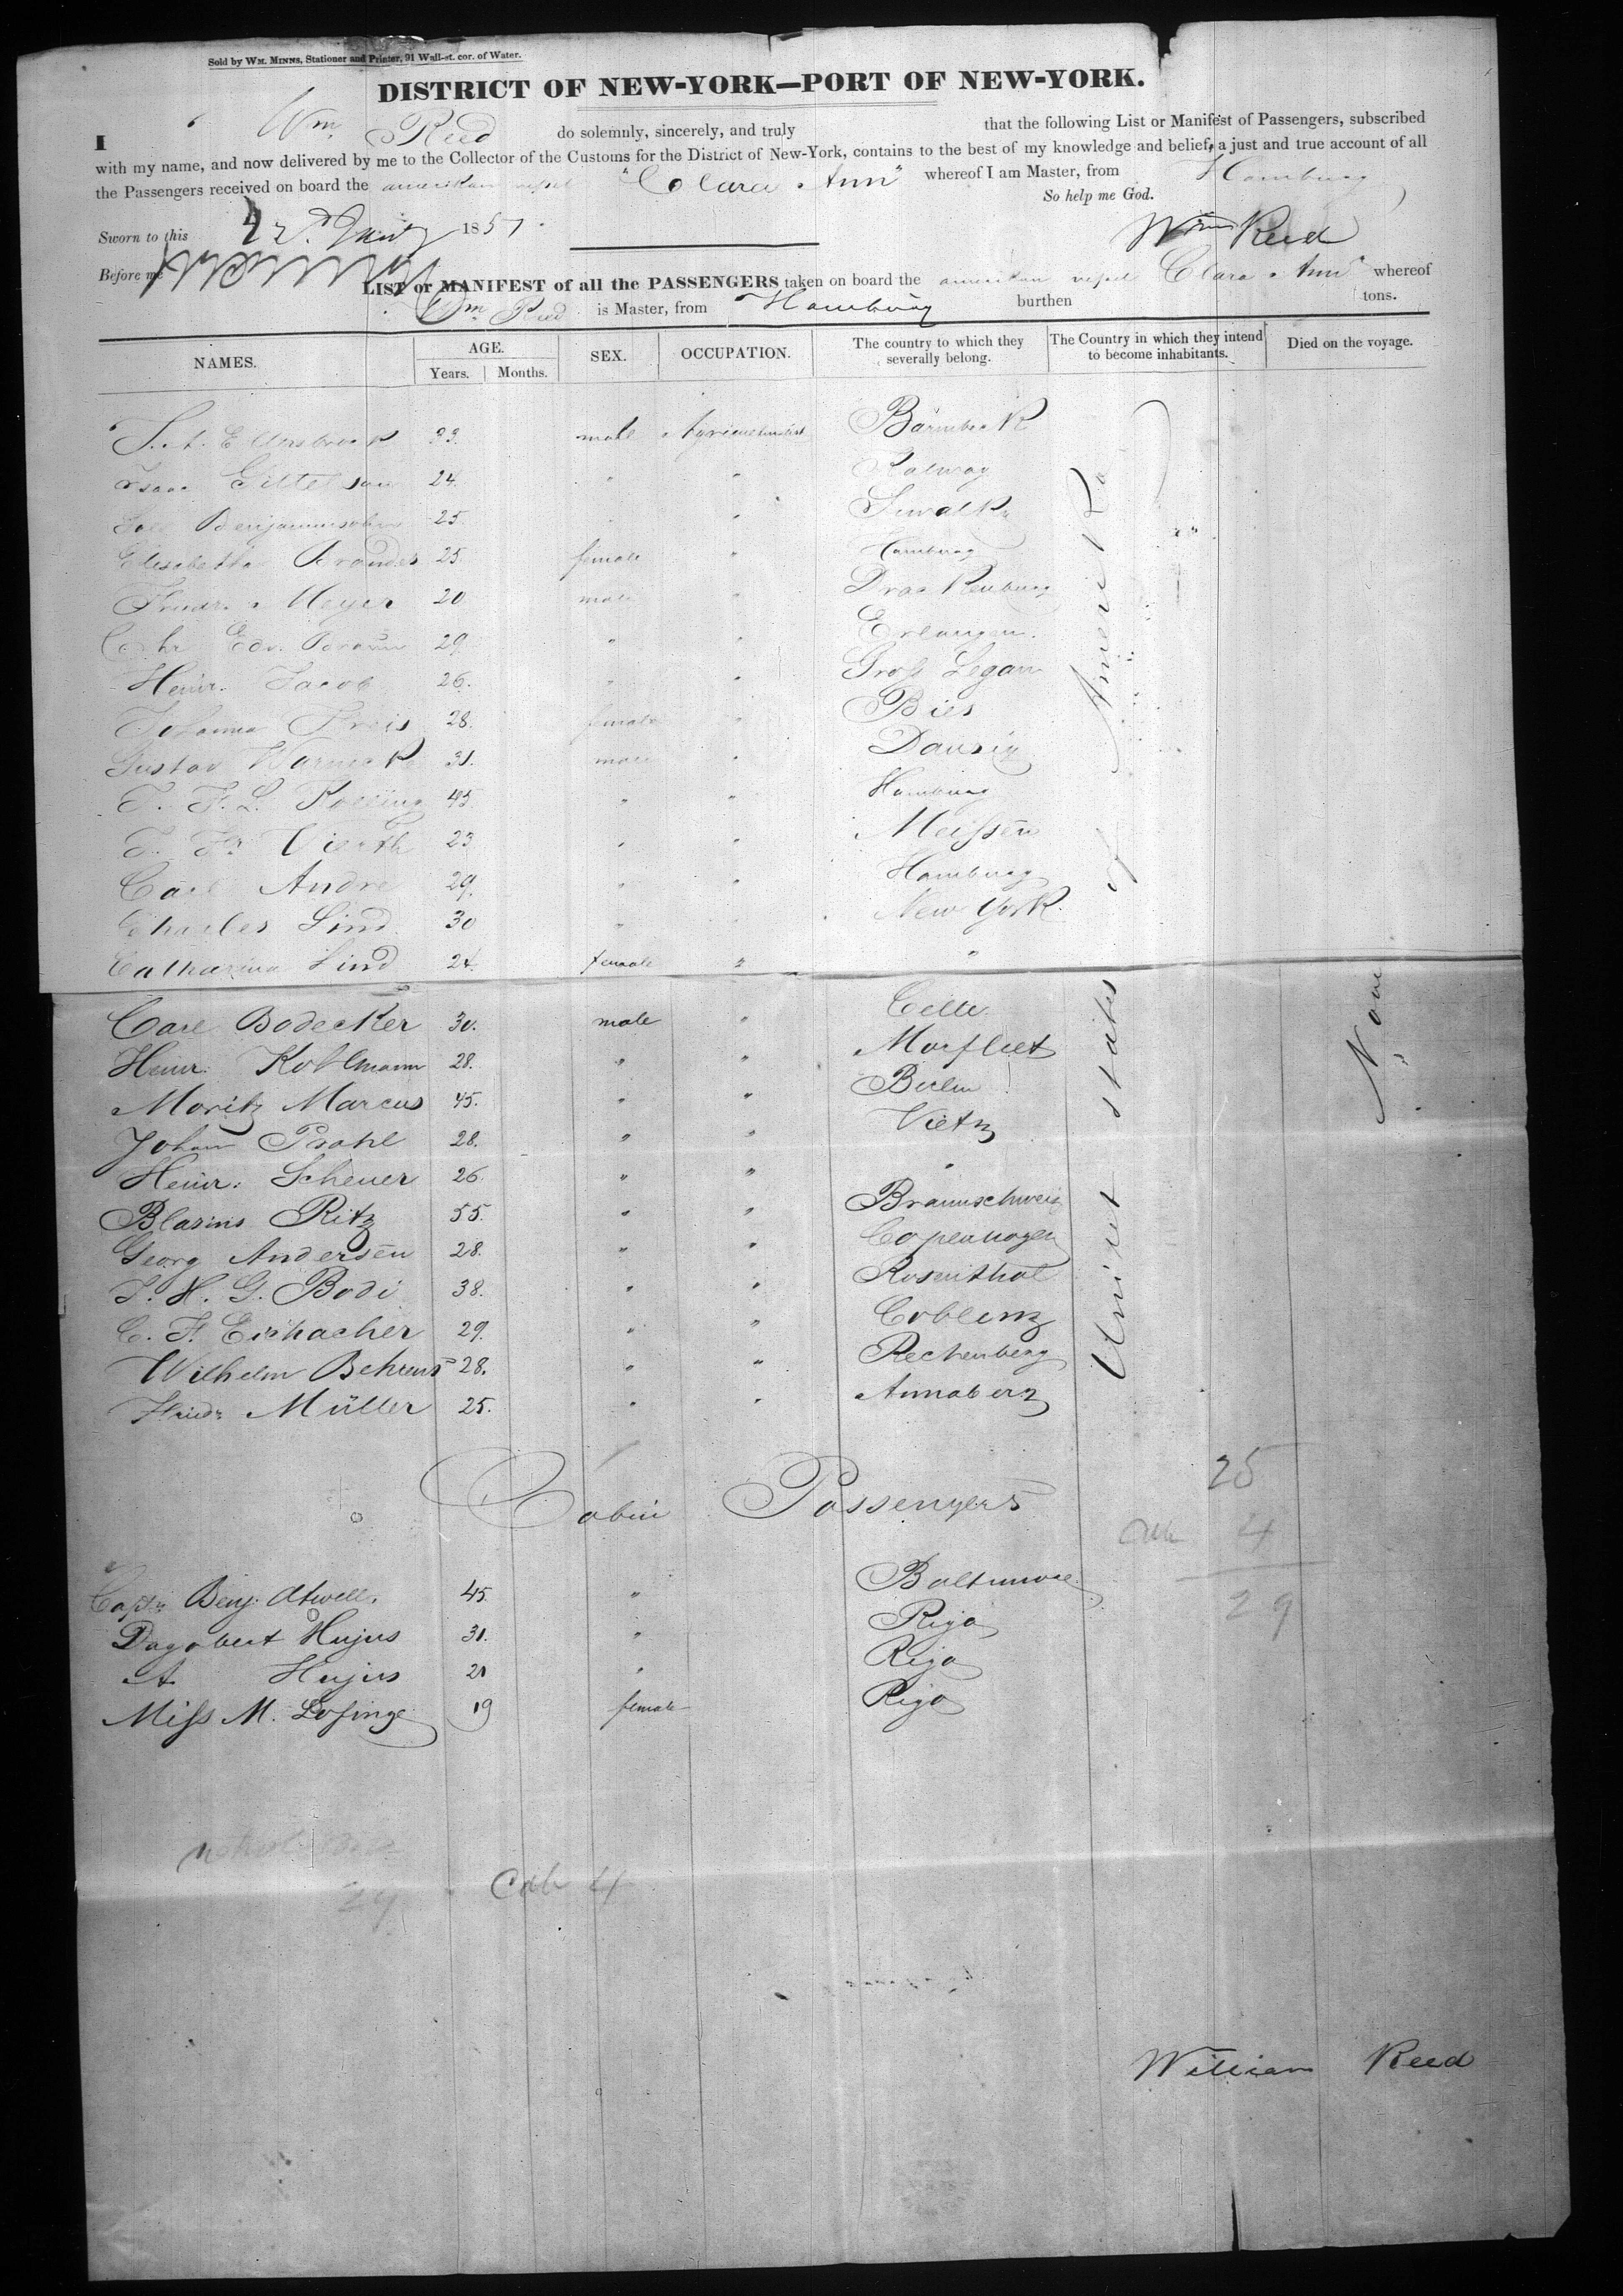 Sold by WM. MINNS, Stationer and Printer, 91 Wall-st. cor. of Water.
DISTRICT OF NEW-YORK—PORT OF NEW-YORK.
I Wm Reed do solemnly, sincerely, and truly that the following List or Manifest of Passengers, subscribed
with my name, and now delivered by me to the Collector of the Customs for the District of New-York, contains to the best of my knowledge and belief, a just and true account of all
the Passengers received on board the amerikan "Clara Ann" whereof I am Master, from Hamburg
So help me God.
Sworn to this 1851. Wm Reed
Before me
LIST or MANIFEST of all the PASSENGERS taken on board the amerikan Clara Ann whereof
Wm Reed is Master, from Hamburg burthen tons.
NAMES. AGE. SEX. OCCUPATION. The country to which they severally belong. The Country in which they intend to become inhabitants. Died on the voyage.
Years. Months.
33. male Agriculturist Barmbeck
Isaac 24. " "
Benjaminsohn 25. " " Suwalk
Elisabetha Brandes 25. female " Hamburg
Friedr. Meyer 20 male " Drackenburg
Chr. Edv. Braun 29 " " Erlangen.
Heinr. Jacob 26. " " Gross Legan
Johanna 28. female " Bies
Gustav Warneck 31. male " Danzig
J. F. L. 45. " " Hamburg
J. Fr. Vieth 23 " " Meissen
Carl Andre 29. " " Hamburg
Charles Lind 30 " New York.
Catharina Lind 24. female " "
Carl Bodecker 30. male " Celle
Heinr. Kohlmann 28. " " Morfleet
Moritz Marcus 45. " " Berlin
Johan Prahl 28. " " Vietz
Heinr. Scheuer 26. " " "
Blasius Ritz 55. " " Braunschweig
Georg Andersen 28. " " Copenhagen
J. H. G. Bodi 38. " " Rosenthal
C. F. Eisbacher 29. " " Coblenz
Wilhelm Behrens 28. " " Rechenberg
Friedr. Müller 25. " " Annaberg
Uniret states of Amerika
None
Cabin Passengers
25
Cab 4
29
Capt. Benj. Atwell. 45. " Baltimore
Dagobert Hujus 31. " Riga
A Hujus 21 " Riga
Miss M. Losinge 19 female Riga
29 Cab 4
William Reed